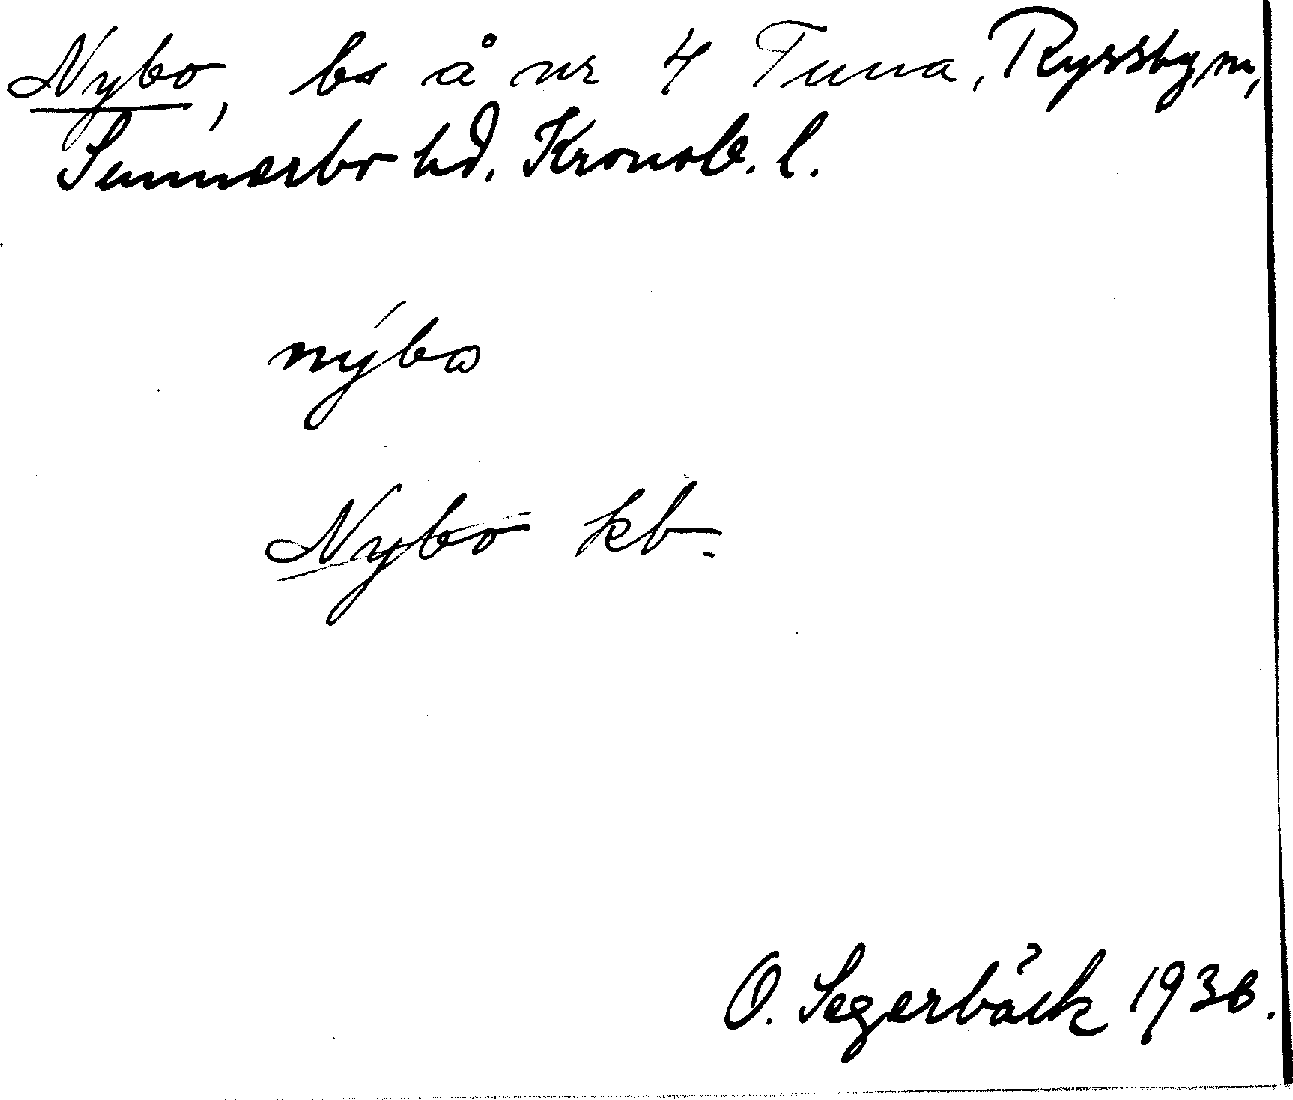 Nybo, bs å nr 4 Tuna, Ryssby sn,
Sunnerbo hd. Kronob. l.
nýbo
Nybo kb.
O. Segerbäck 1936.